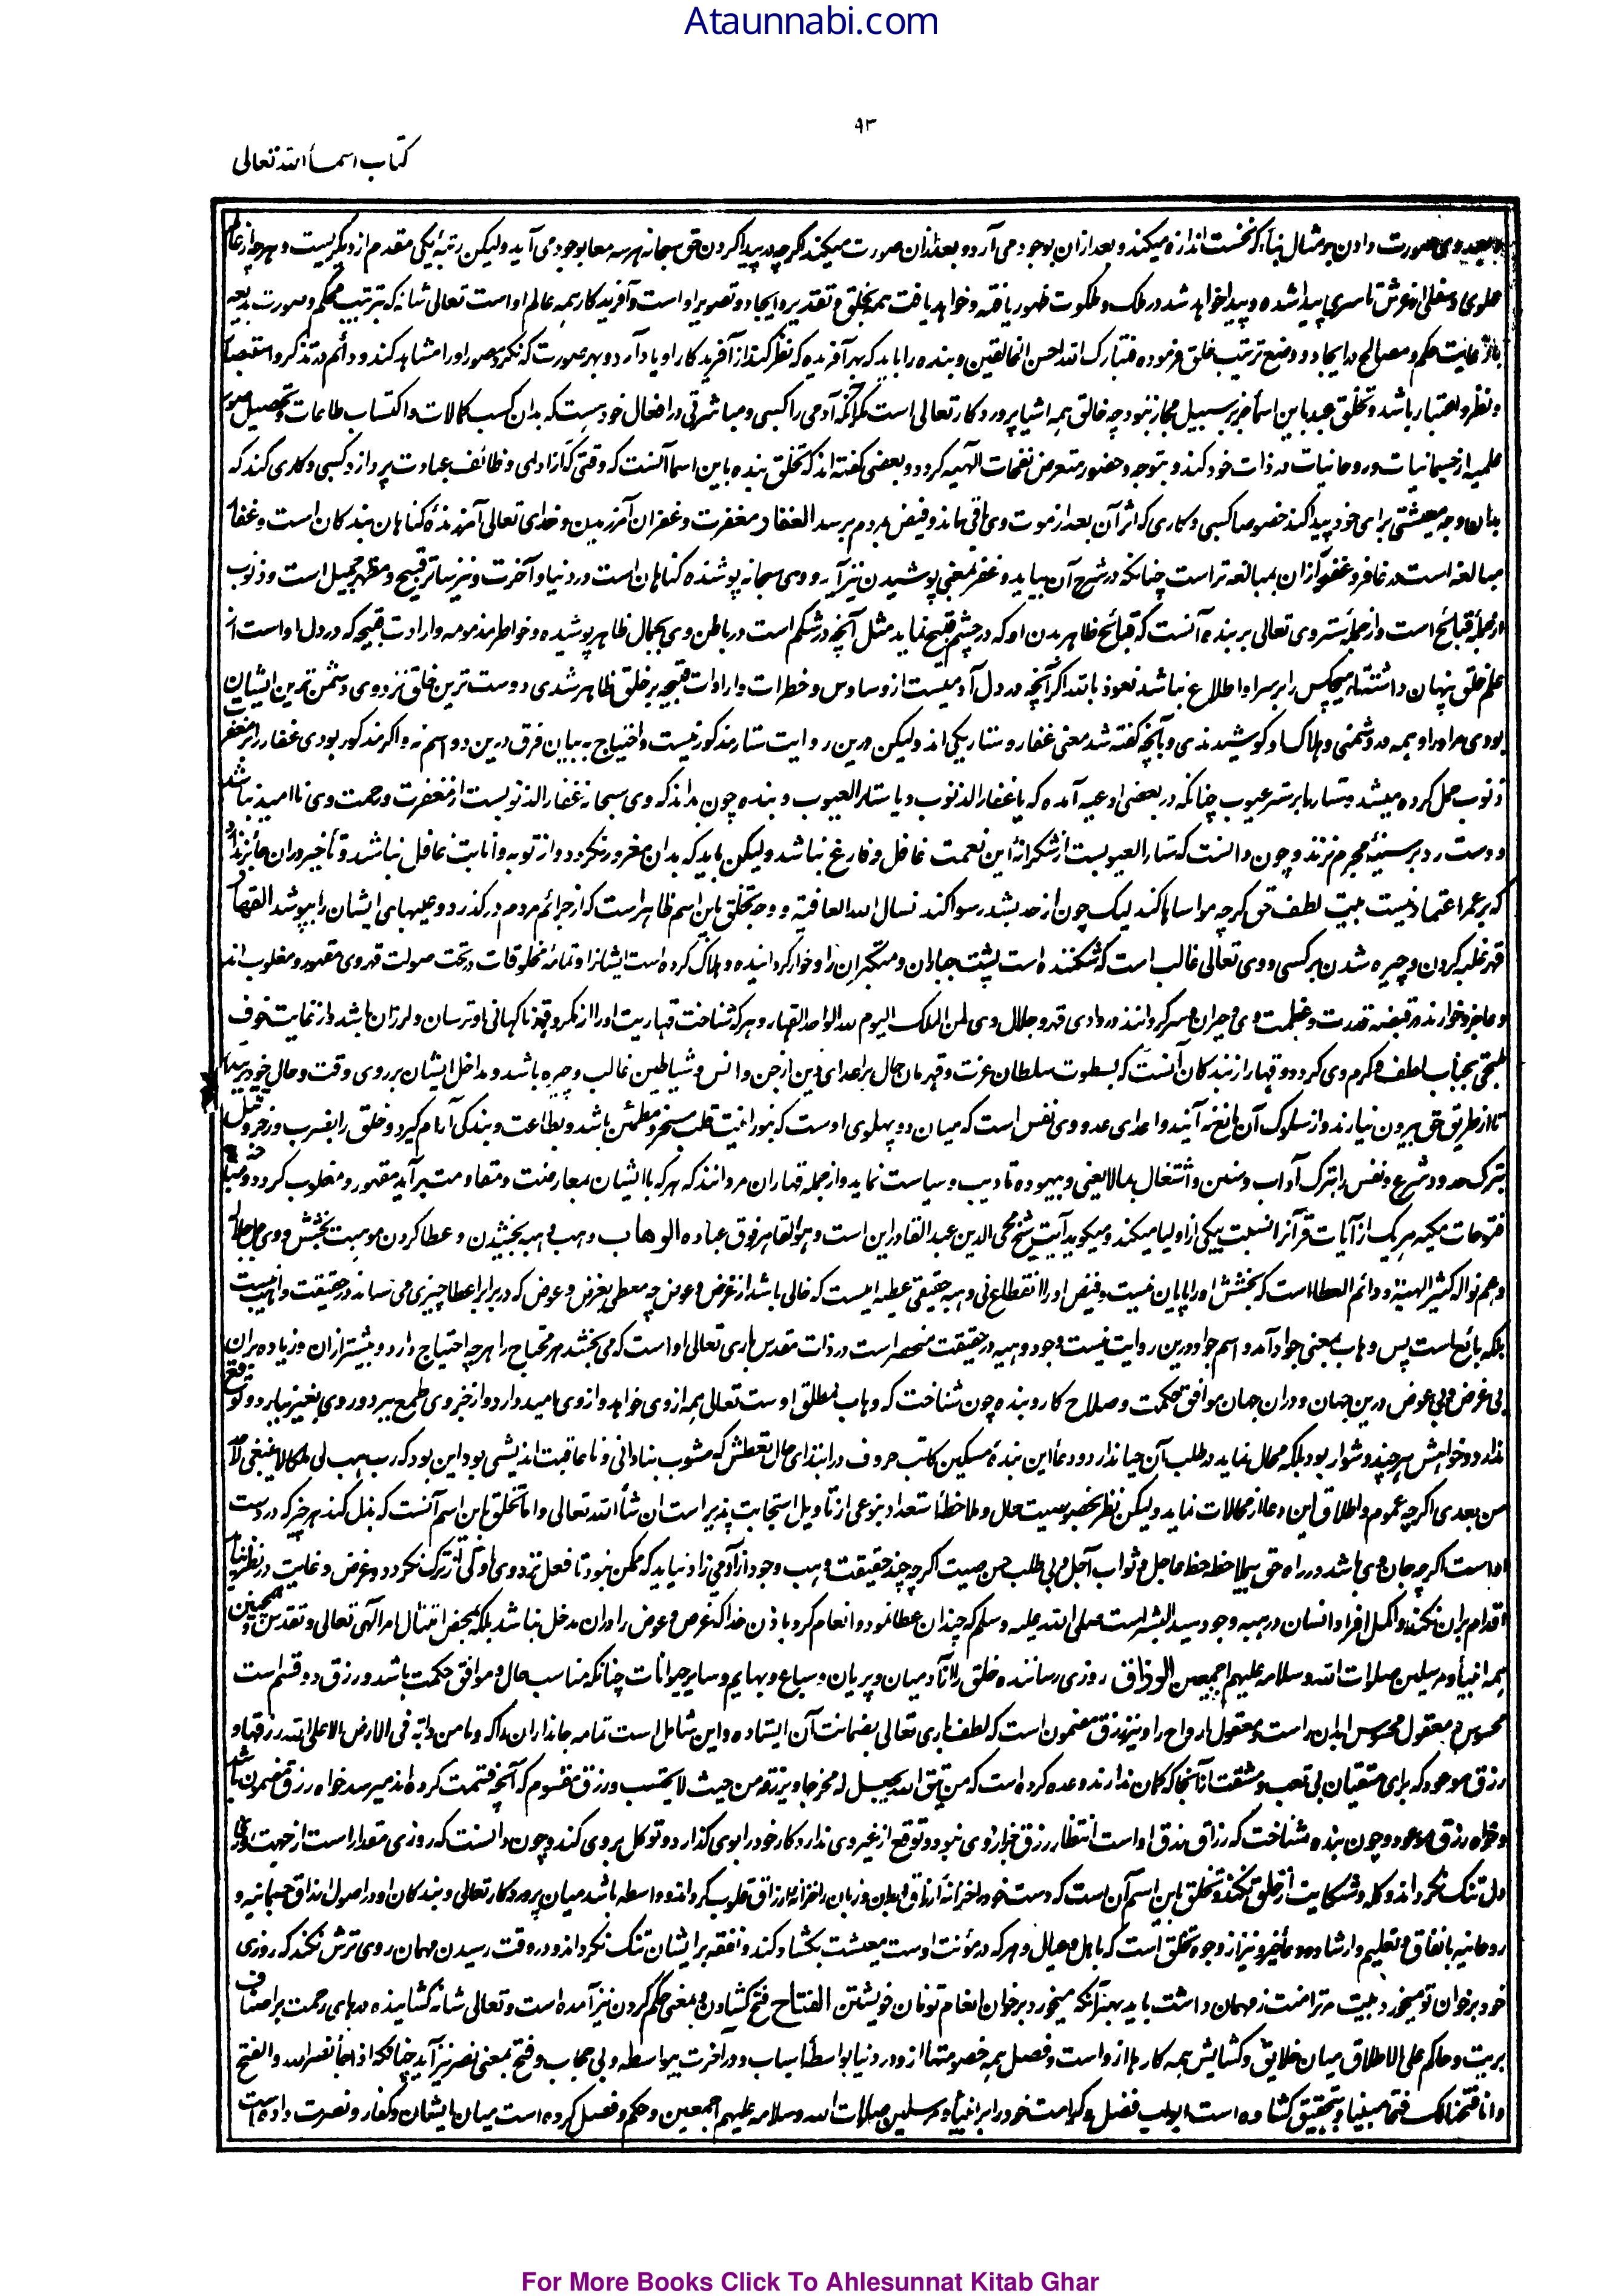 Ataunnabi.com
۹۳
کتاب اسماء الله تعالی
صورت دادن بر مثال بنا که نخست اندازه میکند و بعد ازان بوجود می آرد و بعد ازان صورت میکند اگرچه در پیدا کردن حق سبحانه هر سه معا بوجود می آید ولیکن رتبه یکی مقدم از دیگریست و هر چه از عالم
علوی و سفلی از عرش تا سری پیدا شده و پیدا خواهد شد در ملک و ملکوت ظهور یافته و خواهد یافت همه بخلق و تقدیر و ایجاد و تصویر او است و آفریدگار همه عالم او است تعالی شانه که بترتیب محکم و صورت بدیعه
رعایت حکم و مصالح در ایجاد و وضع ترتیب خلق فرموده فتبارک الله احسن الخالقین و بنده را باید که بهر آفریده که نظر کند از آفریدگار او یاد آرد و بهر صورت که نگرد مصور او را مشاهد کند و دائم در تذکر و استبصار
و نظر و اعتبار باشد و تخلق عبد باین اسما جز بر سبیل مجاز نبود چه خالق همه اشیا پروردگار تعالی است مگر آنکه آدمی را کسبی و مباشرتی در افعال خود هست که بدان کسب کمالات و اکتساب طاعات و تحصیل صور
علمیه از جسمانیات و روحانیات در ذات خود کند و بتوجه و حضور متعرض نفحات الهیه گردد و بعضی گفته اند که تخلق بنده باین اسما آنست که وقتی که از ادای وظائف عبادت پردازد کسبی و کاری کند که
بدان وجه معیشتی برای خود پیدا کند خصوصا کسبی و کاری که اثر آن بعد از موت وی باقی ماند و فیض بمردم برسد الغفار مغفرت و غفران آمرزیدن و خدای تعالی آمرزنده گناهان بندگان است و غفار
مبالغه است در غافر و غفور ازان بمبالغه تر است چنانکه در شرح آن بیاید و غفر بمعنی پوشیدن نیز آید و وی سبحانه پوشنده گناهان است در دنیا و آخرت و نیز ساتر قبیح و مظهر جمیل است و ذنوب
از جمله قبائح است و از جمله ستر وی تعالی بر بنده آنست که قبائح ظاهر بدن او که در چشم قبیح نماید مثل آنچه در شکم است در باطن وی بجمال ظاهر پوشیده و خواطر مذمومه و ارادت قبیحه که در دل او است از
علم خلق پنهان داشته تا هیچکس را بر سر او اطلاع نباشد نعوذ بالله اگر آنچه در دل آدمیست از وساوس و خطرات و ارادات قبیحه بر خلق ظاهر شدی دوست ترین خلق نزد وی دشمن ترین ایشان
بودی مر او را و همه در دشمنی و هلاک او کوشیدندی و بآنچه گفته شد معنی غفار و ستار یکی اند ولیکن درین روایت ستار مذکور نیست و احتیاج به بیان فرق درین دو اسم نه و اگر مذکور بودی غفار را بر مغفرت
ذنوب حمل کرده میشد و ستار را بر ستر عیوب چنانکه در بعضی ادعیه آمده که یا غفار الذنوب و یا ستار العیوب و بنده چون داند که وی سبحانه غفار الذنوبست از مغفرت و رحمت وی ناامید نباشد
و دست رد بر سینه مجرم نزند و چون دانست که ستار العیوبست از شکرانه این نعمت غافل و فارغ نباشد ولیکن باید که بدان مغرور نگردد و از توبه و انابت غافل نباشد و تأخیر دران جائز ندارد
که بر عمر اعتماد نیست بیت لطف حق گرچه مواساها کند لیک چون از حد بشد رسوا کند نسال الله العافیة و وجه تخلق باین اسم ظاهر است که از جرائم مردم درگذرد و عیبهای ایشان را بپوشد القهار
قهر غلبه کردن و چیره شدن بر کسی و وی تعالی غالب است که شکننده است پشت جباران و متکبران را و خوار گردانیده و هلاک کرده است ایشانرا و تمامه مخلوقات در تحت صولت قهر وی مقهور و مغلوب اند
و عاجز و خوارند در قبضه قدرت و عظمت وی و حیران و سرگردانند در وادی قهر و جلال وی لمن الملک الیوم لله الواحد القهار و هر که شناخت قهاریت او را از مکر و قهر ناگهانی او ترسان و لرزان باشد و از نهایت خوف
ملتجی بجناب لطف و کرم وی گردد و قهار از بندگان آنست که بسطوت سلطان عزت و قهرمان جلال بر اعدای دین از جن و انس و شیاطین غالب و چیره باشد و مداخل ایشان بر روی وقت و حال خود ببندد
تا از طریق حق بیرون نیارند و از سلوک آن مانع نه آیند و اعدی عدو وی نفس است که میان دو پهلوی اوست که بنورانیت قلب مسخر و مطمئن باشد و بطاعت و بندگی آرام گیرد و خلق را بضرب و زجر و قتل
بترک حدود شرع و نفس را بترک آداب و سنن و اشتغال بما لا یعنی و بیهوده تادیب و سیاست نماید و از جمله قهاران مردانند که هر که با ایشان بمعارضت و مقاومت برآید مقهور و مغلوب گردد و صاحب
فتوحات مکیه هر یک از آیات قرآنرا نسبت بیکی از اولیا میکند و میگوید آیت شیخ محی الدین عبد القادر این است و هو القاهر فوق عباده الوهاب وهب و هبه بخشیدن و عطا کردن موهبت بخشش و وی جل جلاله
و عم نواله کثیر الهبة و دائم العطا است که بخشش او را پایان نیست و فیض او را انقطاع نی و هبه حقیقی عطیه ایست که خالی باشد از غرض و عوض چه معطی بغرض و عوض که در برابر عطا چیزی می ستاند در حقیقت واهب نیست
بلکه بائع است پس وهاب بمعنی جواد آمد و اسم جواد درین روایت نیست و جود و هبه در حقیقت منحصر است در ذات مقدس باری تعالی او است که می بخشد هر محتاج را هر چه احتیاج دارد و بیشتر ازان و زیاده بران
بی غرض و بی عوض درین جهان و دران جهان موافق حکمت و صلاح کار و بنده چون شناخت که وهاب مطلق اوست تعالی همه از وی خواهد و از وی امیدوارد و از جز وی طمع ببرد و روی بغیر نیارد و توقع
ندارد و خواهش هر چند دشوار بود بلکه محال نماید در طلب آن حیا ندارد و دعا این بنده مسکین کاتب حروف در ابتدای حال تعطش که مشوب بنادانی و ناعاقبت اندیشی بود این بود که رب هب لی ملکا لا ینبغی لاحد
من بعدی اگرچه عموم و اطلاق این دعا از محالات نماید ولیکن نظر بخصوصیت محل و ملاحظه استعداد بنوعی از تاویل استجابت پذیر است ان شاء الله تعالی و اما تخلق باین اسم آنست که بذل کند هر چیز که در دست
اوست اگرچه جان وی باشد در راه حق بیملاحظه حظ عاجل و ثواب آجل و بی طلب حسن صیت اگرچه چند حقیقت وهب وجود از آدمی زاد نیاید که ممکن نبود تا فعل نزد وی اولی از ترک نگردد و غرض و غایت در نظر نیاید
اقدام بران نکند و اکمل افراد انسان در هبه و جود سید البشر است صلی الله علیه و سلم که چندان عطا نمود و انعام کرد باذن خدا که غرض و عوض را دران مدخل نباشد بلکه بمحض امتثال امر الهی تعالی و تقدس و همچنین
همه انبیاء و مرسلین صلوات الله و سلامه علیهم اجمعین الرزاق روزی رساننده خلق را از آدمیان و پریان و سباع و بهایم و سایر حیوانات چنانکه مناسب حال و موافق حکمت باشد و رزق دو قسم است
محسوس و معقول محسوس ابدان راست و معقول ارواح را و نیز رزق مضمون است که لطف باری تعالی بضمانت آن ایستاده و این شامل است تمامه جانداران را که و ما من دابة فی الارض الا علی الله رزقها و
رزق موعود که برای متقیان بی تعب و مشقت از آنجا که گمان ندارند وعده کرده است که من یتق الله یجعل له مخرجا و یرزقه من حیث لا یحتسب و رزق مقسوم که آنچه قسمت کرده اند میرسد خواه رزق مضمون باشد
و خواه رزق موعود و چون بنده شناخت که رزاق مرزق او است انتظار رزق جز از وی نبود و توقع از غیر وی ندارد کار خود را بوی گذارد و توکل بر وی کند و چون دانست که روزی مقدار است از جهت روزی
دل تنگ نگرداند و گله و شکایت از خلق نکند و تخلق باین اسم آن است که دست خود را خزانه ارزاق ابدان و زبان را خزانه ارزاق قلوب گرداند و واسطه باشد میان پروردگار تعالی و بندگان او در اصول ارزاق جسمانیه و
روحانیه بانفاق و تعلیم و ارشاد و دعای خیر و نیز از وجوه تخلق است که باهل و عیال و هر که در مؤنت اوست معیشت بکشاد کند و نفقه بر ایشان تنگ نگرداند و در وقت رسیدن مهمان روی ترش نکند که روزی
خود بر خوان تو میخورد بیت مر ترا منت ز مهمان داشت باید بهر آنکه میخورد بر خوان انعام تو نان خویشتن الفتاح فتح کشادن و بمعنی حکم کردن نیز آمده است و تعالی شانه کشاینده درهای رحمت بر اصناف
بریت و حاکم علی الاطلاق میان خلایق و کشایش همه کارها از او است و فصل همه خصومتها از و در دنیا بواسطه اسباب و در آخرت بیواسطه و بی حجاب و فتح بمعنی نصر نیز آید چنانکه اذا جاء نصر الله و الفتح
و انا فتحنا لک فتحا مبینا و بتحقیق کشاده است ابواب فضل و کرامت خود را بر انبیاء و مرسلین صلوات الله و سلامه علیهم اجمعین و حکم و فصل کرده است میان ایشان و کفار و نصرت داده است
For More Books Click To Ahlesunnat Kitab Ghar